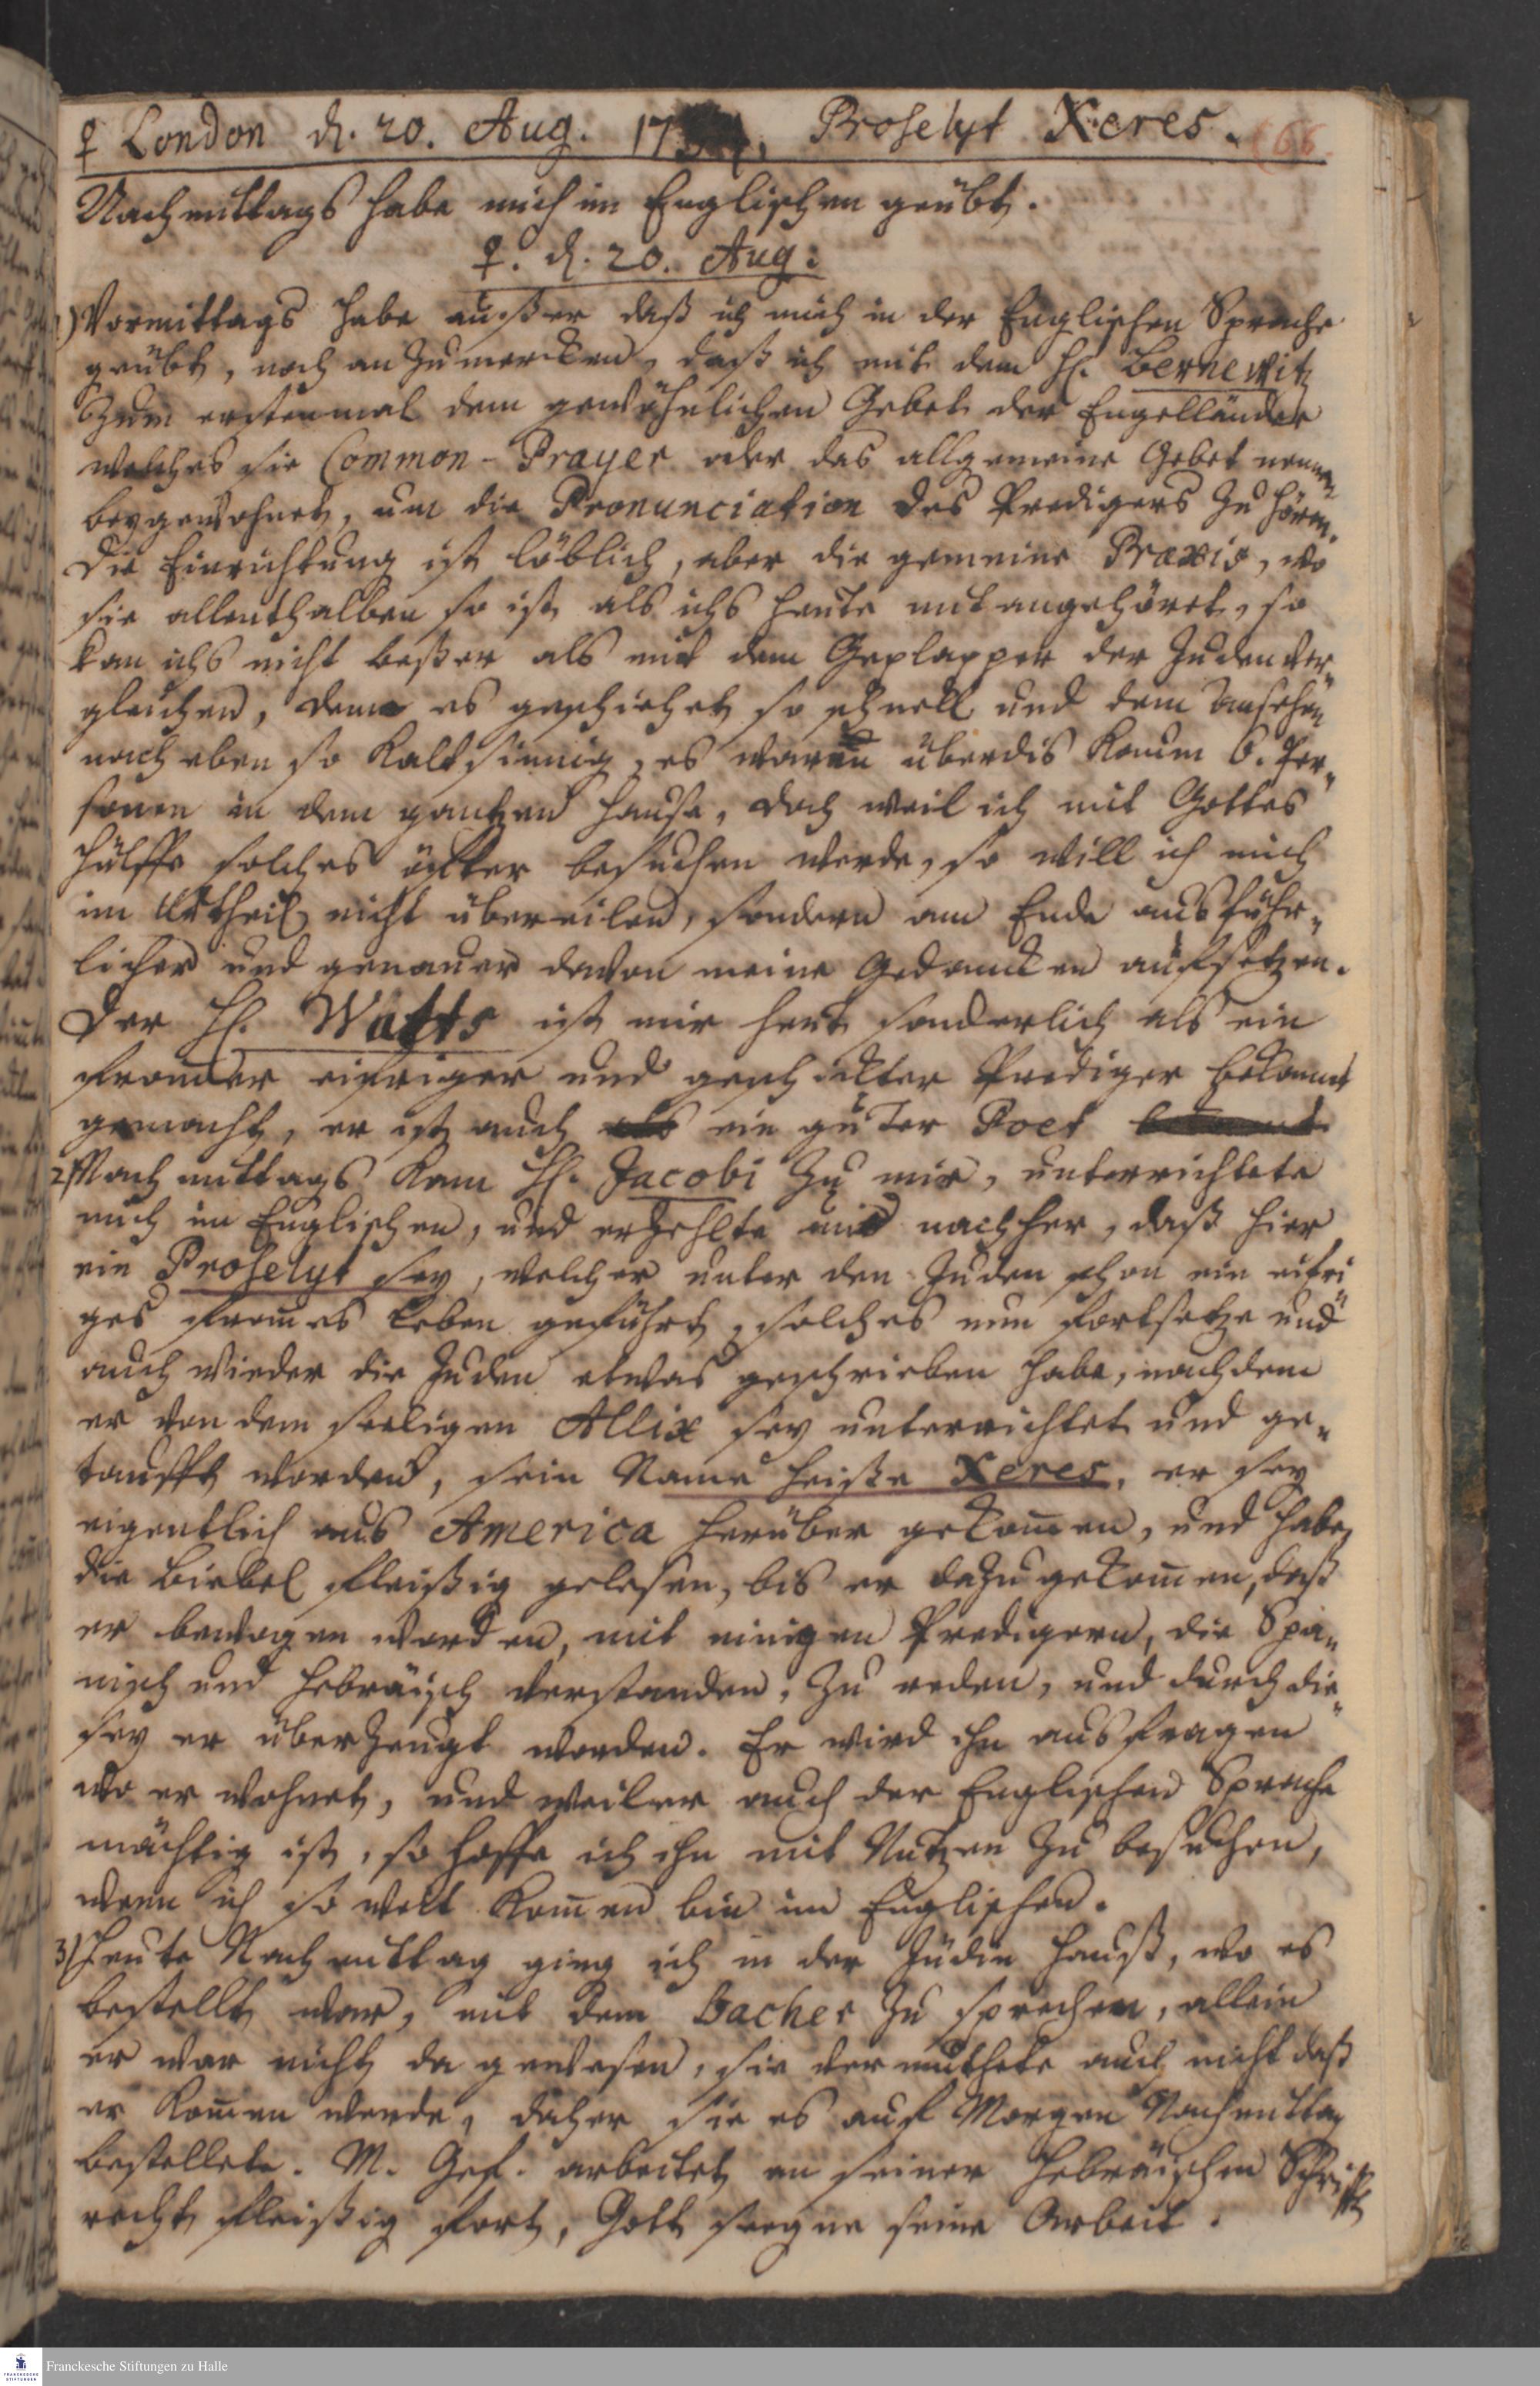 ♀ London d. 20. Aug. 17 Proselyt Xeres. (66.
Nachmittags habe mich im Englischen geübt.
♀. d. 20. Aug:
1) Vormittags habe außer daß ich mich in der Englischen Sprache
geübt, noch an zu mercken, daß ich mit dem H. Bernewitz
zum erstenmal dem gewöhnlichen Gebet der Engelländer
welches sie Common-Prayer oder das allgemeine Gebet nennen
beygewohnet, um die Pronunciation des Predigers zu hören.
Die Einrichtung ist löblich, aber die gemeine Praxis, wo
sie allenthalben so ist, als ichs heute mit angehöret, so
kan ichs nicht beßer als mit dem Geplapper der Juden ver-
gleichen, denn es geschiehet so schnell und dem Ansehen
nach eben so kaltsinnig, es waren überdis kaum 6. Per-
sonen in dem gantzen Hause, doch weil ich mit Gottes
Hülffe solches öffter besuchen werde, so will ich mich
im Urtheil nicht übereilen, sondern am Ende ausführ-
licher und genauer davon meine Gedancken aufsetzen.
Der H. Watts ist mir hert sonderlich als ein
frommer eifriger und geschickter Prediger bekannt
gemacht, er ist auch ein guter Poet
2) Nachmittags kam H. Jacobi zu mir, unterrichtete
mich im Englischen, und erzehlte mir nachher, daß hier
ein Proselyt sey, welcher unter den Juden schon ein eifri-
ges from̅es Leben geführt, solches nun fortsetze und
auch wieder die Juden etwas geschrieben habe, nachdem
er von dem seeligen Allix sey unterrichtet und ge-
taufft worden, sein Name heiße Xeres, er sey
eigentlich aus America herüber gekom̅en, und habe
die Biebel fleißig gelesen, bis er dazu gekom̅en, daß
er bewogen worden, mit einigen Predigern, die Spa-
nisch und Hebräisch verstanden, zu reden, und durch die-
sey er überzeugt worden. Er wird ihn ausfragen
wo er wohnet, und weil er auch der Englischen Sprache
mächtig ist, so hoffe ich ihn mit Nutzen zu besuchen,
wenn ich so weit kom̅en bin im Englischen.
3) Heute Nachmittag ging ich in der Jüdin Hauß, wo es
bestellt war, mit dem Bacher zu sprechen, allein
er war nicht da gewesen, sie vermuthete auch nicht daß
er kom̅en werde, daher sie es auf Morgen Nachmittag
bestellete. M. Gef. arbeitet an seiner Hebräischen Schrifft
recht fleißig fort, Gott seegne seine Arbeit.
Franckesche Stiftungen zu Halle